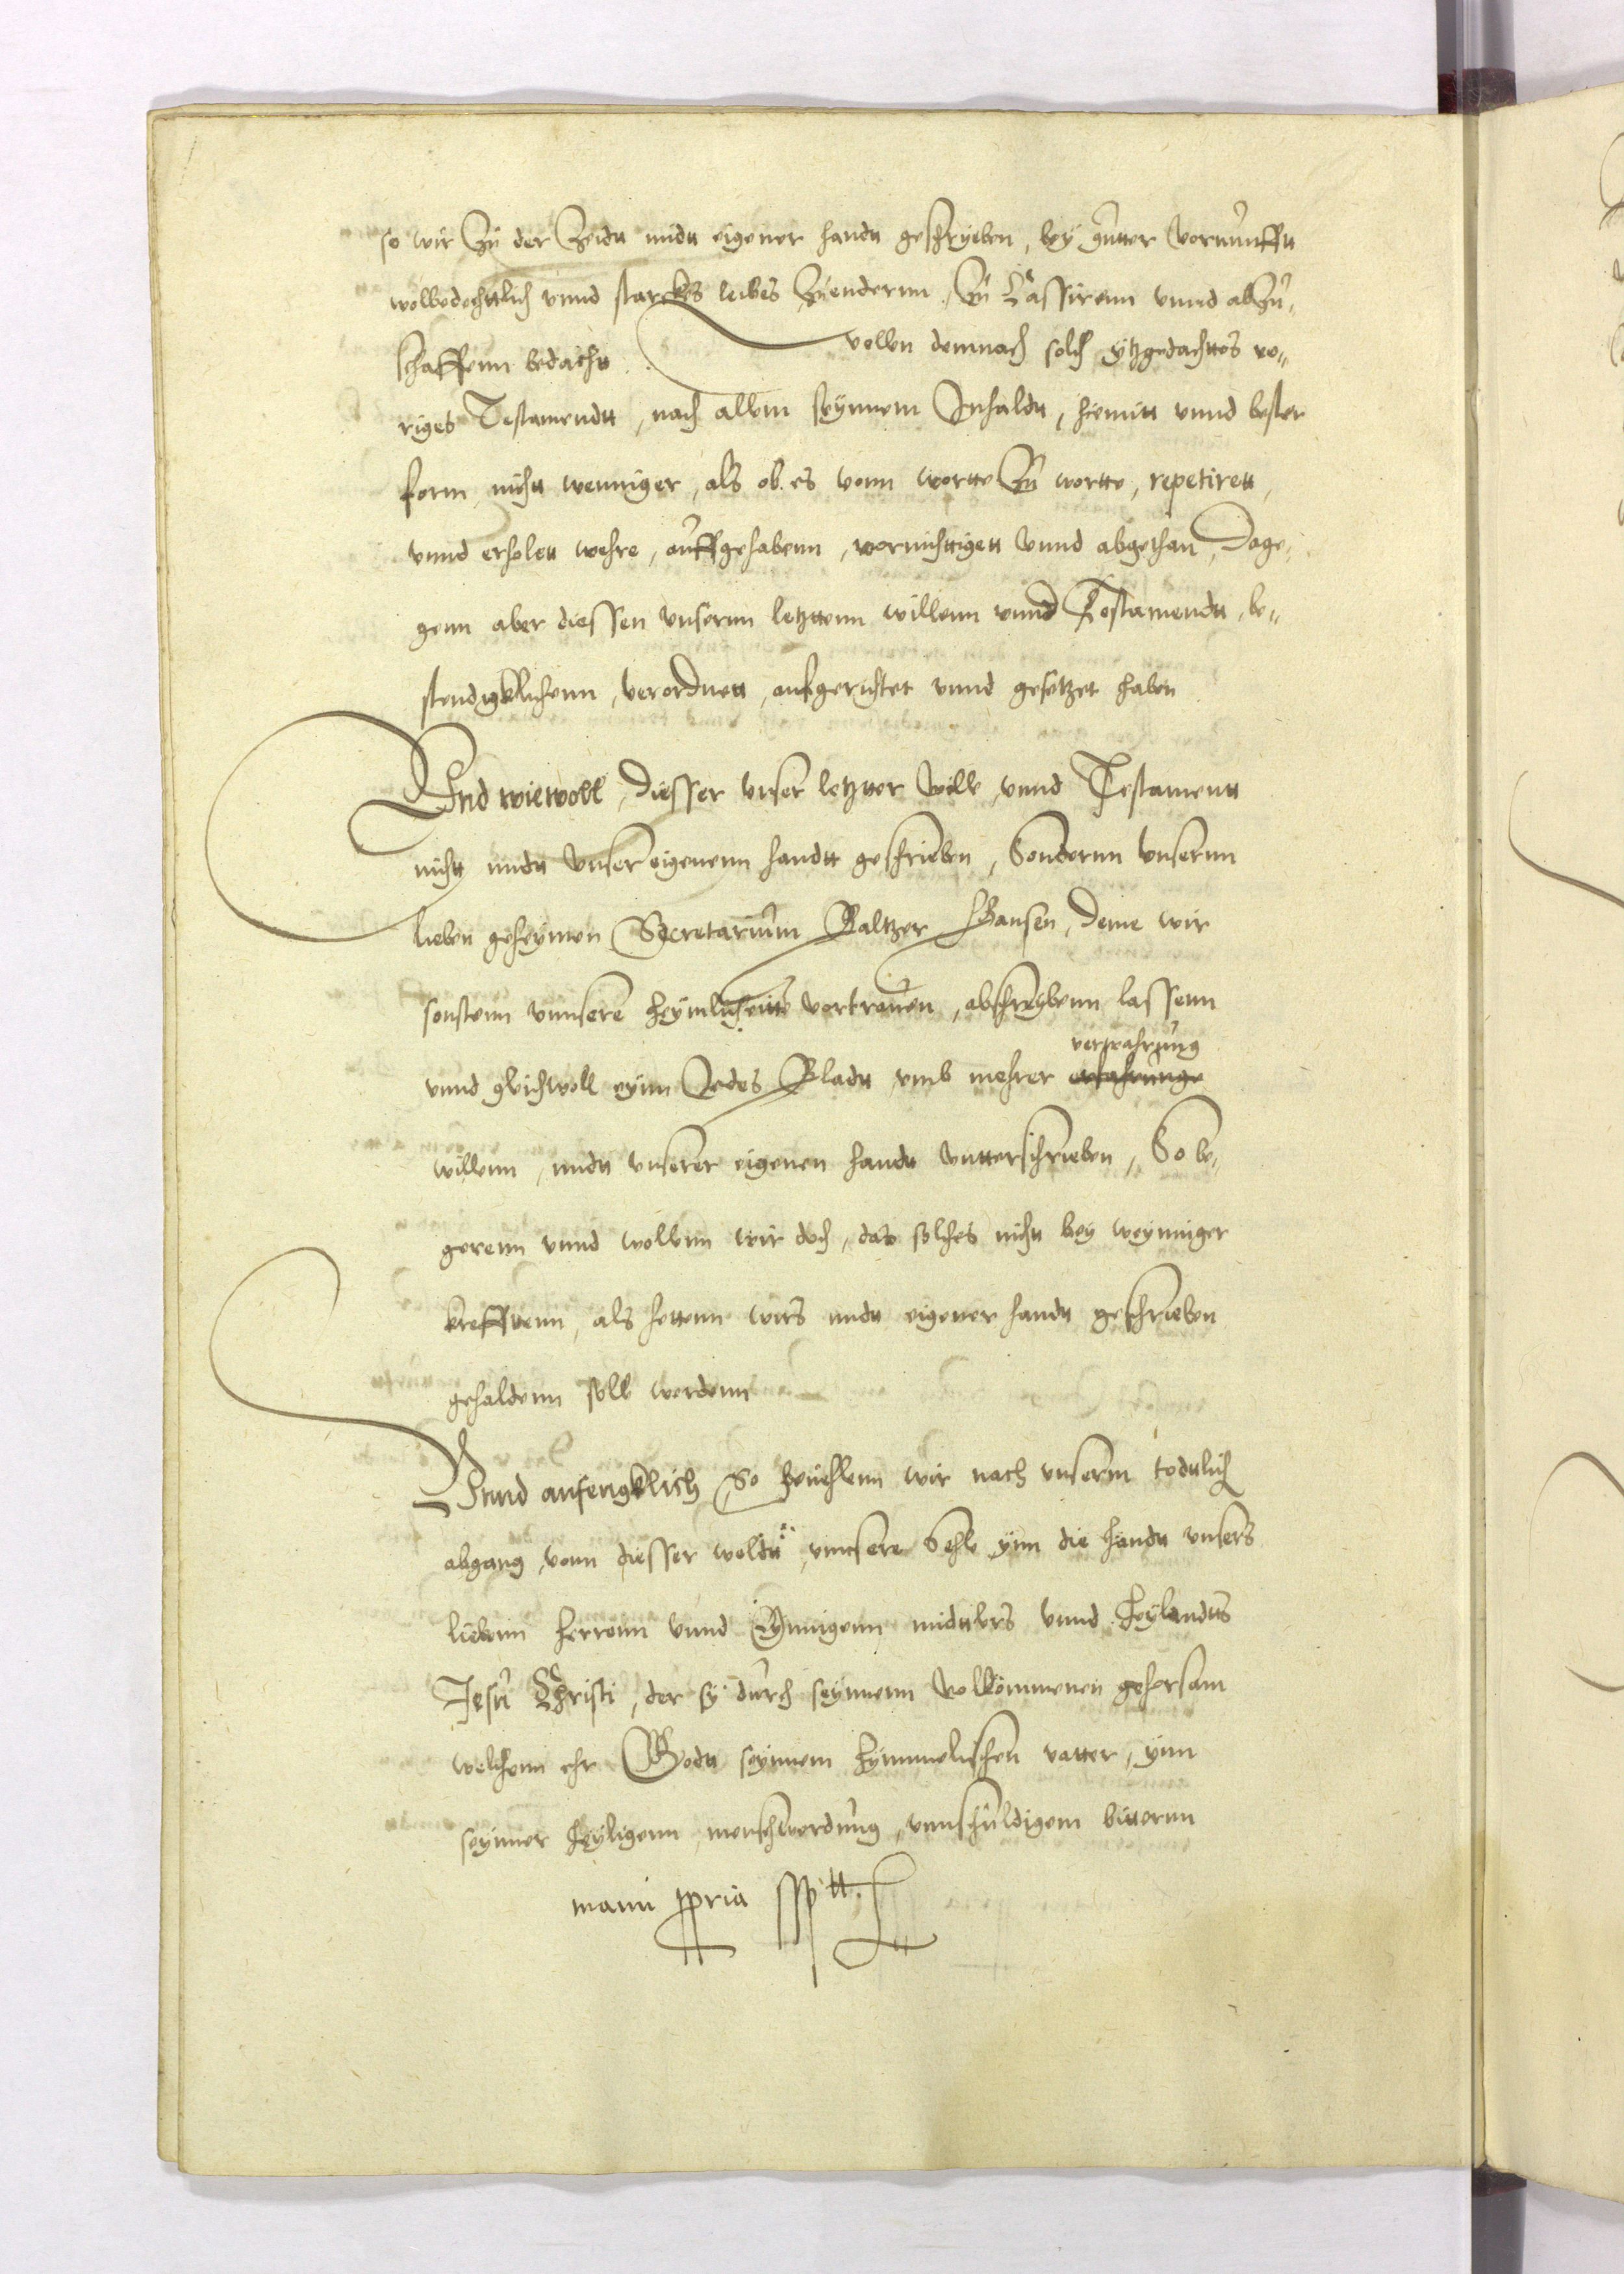 so wir Zu der Zeidtt midtt eigener handtt geschryeben, bey gutter vernunfftt
wolbedechttlich vnnd starckes leibes Zuendernn, Zu Cassirenn vnnd abZu-
schaffenn bedachtt. wollen demnach solch ytzgedachttes vo-
riges Testamendtt, nach allem seynnem Inhaldtt, hiemitt vnnd bester
form nichtt wenniger, als ob es vonn wortte Zu wortte, repetirett,
vnnd erholett wehre, auffgehabenn, vornichttigett vnnd abgethan, Dage-
genn aber diessen vnsernn letzttenn willenn vnnd Testamendtt, be-
stendigklichenn, verordnett, aufgerichtet vnnd gesetzet haben
Vnd wiewoll, diesser vnser letztter will, vnnd Testamentt
nichtt midtt vnser eigenenn handtt geschrieben, Sondernn vnsernn
lieben geheymen Secretarium Baltzer Gansen, deme wir
sonstenn vnnsere heymligkeitt vertrauen, abschreybenn lassenn
vnnd gleichwoll eynn Jedes Bladtt vmb mehrer erfahrunge verwahrung
willenn, midtt vnserer eigenen handtt vnttterschrieben, So be-
gerenn vnnd wollenn wir doch, das solches nichtt bey weynniger
krefftenn, als hettenn wirs midtt eigener handtt geschrieben
gehaldenn soll werdenn
Vnnd anfengklich, So beuehlenn wir nach vnserm todttlich
abgang, vonn diesser weldtt, vnnsere Sehle ynn die handtt vnsers
liebenn herrenn vnnd Eynnigenn midttlers vnnd Heylandtts
Jesu Christi, der sy durch seynnenn volkommenen gehorsam
welchenn ehr Godtt seynnem hymmelischen vatter, ynn
seynner heyligenn menschwerdung, vnnschuldigem bitternn
manu ppria ssptt